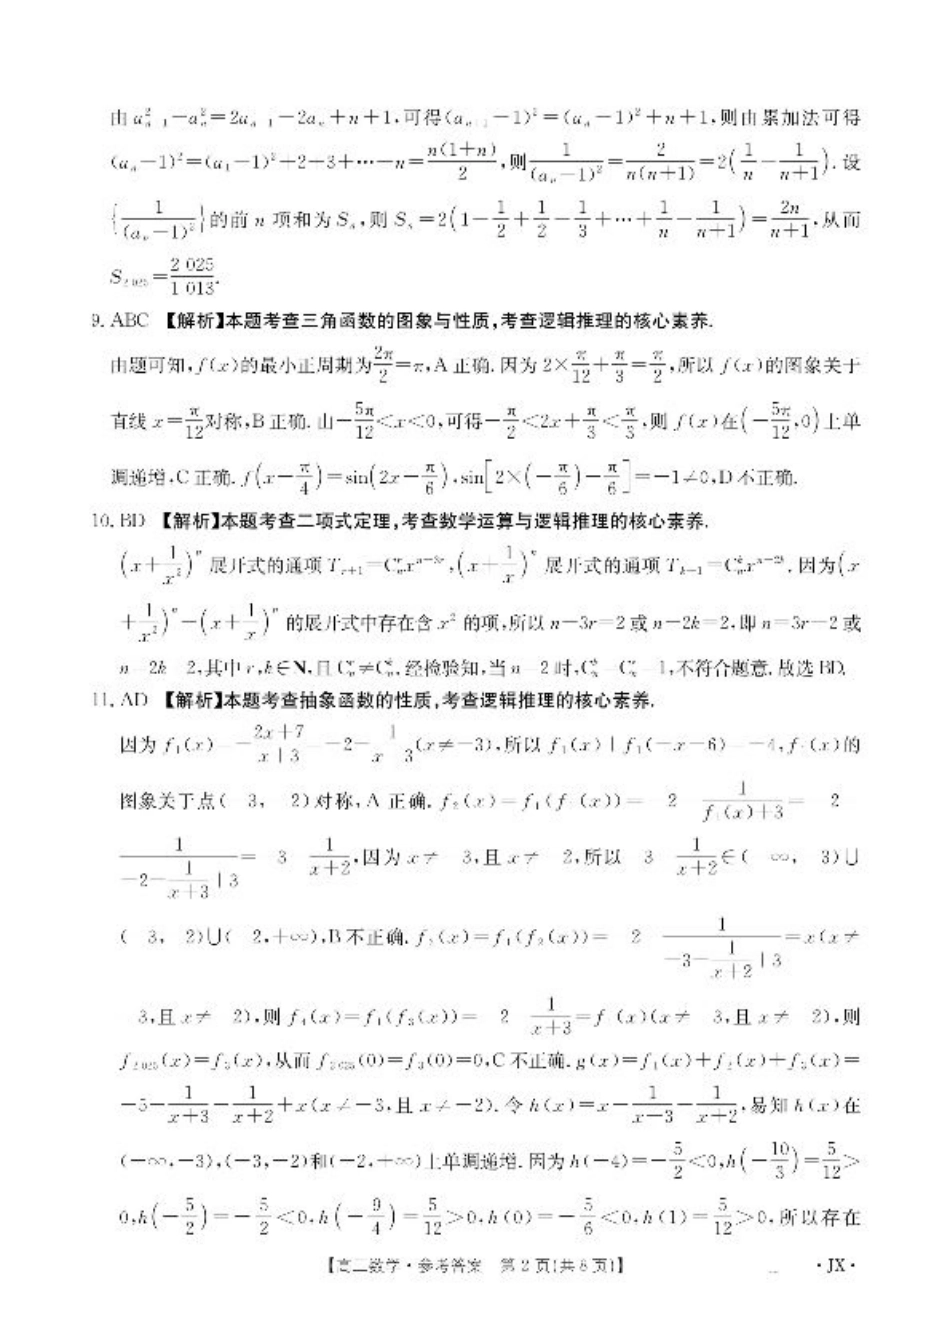 由 a²ₙ₊₁－a²ₙ＝2aₙ₊₁－2aₙ＋n＋1,可得(aₙ₊₁－1)²＝(aₙ－1)²＋n＋1,则由累加法可得
(aₙ－1)²＝(a₁－1)²＋2＋3＋…＋n＝n(1＋n)/2,则1/(aₙ－1)²＝2/n(n＋1)＝2(1/n－1/(n＋1)).设
{1/(aₙ－1)²}的前 n 项和为 Sₙ,则 Sₙ＝2(1－1/2＋1/2－1/3＋…＋1/n－1/(n＋1))＝2n/(n＋1),从而
S₂₀₂₅＝2 025/1 013.
9. ABC 【解析】本题考查三角函数的图象与性质,考查逻辑推理的核心素养.
由题可知,f(x)的最小正周期为2π/2＝π,A 正确.因为 2×π/12＋π/3＝π/2,所以 f(x)的图象关于
直线 x＝π/12对称,B 正确.由－5π/12＜x＜0,可得－π/2＜2x＋π/3＜π/3,则 f(x)在(－5π/12,0)上单
调递增,C 正确.f(x－π/4)＝sin(2x－π/6),sin[2×(－π/6)－π/6]＝－1≠0,D 不正确.
10. BD 【解析】本题考查二项式定理,考查数学运算与逻辑推理的核心素养.
(x＋1/x²)ⁿ 展开式的通项 Tᵣ₊₁＝Cʳₙxⁿ⁻³ʳ,(x＋1/x)ⁿ 展开式的通项 Tₖ₊₁＝Cᵏₙxⁿ⁻²ᵏ.因为(x
＋1/x²)ⁿ－(x＋1/x)ⁿ 的展开式中存在含 x² 的项,所以 n－3r＝2 或 n－2k＝2,即 n＝3r＋2 或
n＝2k＋2,其中 r,k∈N,且 Cʳₙ≠Cᵏₙ.经检验知,当 n＝2 时,Cʳₙ＝Cᵏₙ＝1,不符合题意.故选 BD.
11. AD 【解析】本题考查抽象函数的性质,考查逻辑推理的核心素养.
因为 f₁(x)＝－(2x＋7)/(x＋3)＝－2－1/(x＋3)(x≠－3),所以 f₁(x)＋f₁(－x－6)＝－4,f₁(x)的
图象关于点(－3,－2)对称,A 正确.f₂(x)＝f₁(f₁(x))＝－2－1/(f₁(x)＋3)＝－2－
1/(－2－1/(x＋3)＋3)＝－3－1/(x＋2),因为 x≠－3,且 x≠－2,所以－3－1/(x＋2)∈(－∞,－3)∪
(－3,－2)∪(－2,＋∞),B 不正确.f₃(x)＝f₁(f₂(x))＝－2－1/(－3－1/(x＋2)＋3)＝x(x≠
－3,且 x≠－2),则 f₄(x)＝f₁(f₃(x))＝－2－1/(x＋3)＝f₁(x)(x≠－3,且 x≠－2),则
f₂₀₂₅(x)＝f₃(x),从而 f₂₀₂₅(0)＝f₃(0)＝0,C 不正确.g(x)＝f₁(x)＋f₂(x)＋f₃(x)＝
－5－1/(x＋3)－1/(x＋2)＋x(x≠－3,且 x≠－2).令 h(x)＝x－1/(x＋3)－1/(x＋2),易知 h(x)在
(－∞,－3),(－3,－2)和(－2,＋∞)上单调递增.因为 h(－4)＝－5/2＜0,h(－10/3)＝5/12＞
0,h(－5/2)＝－5/2＜0,h(－9/4)＝5/12＞0,h(0)＝－5/6＜0,h(1)＝5/12＞0,所以存在
【高二数学·参考答案 第 2 页(共 8 页)】 ·JX·